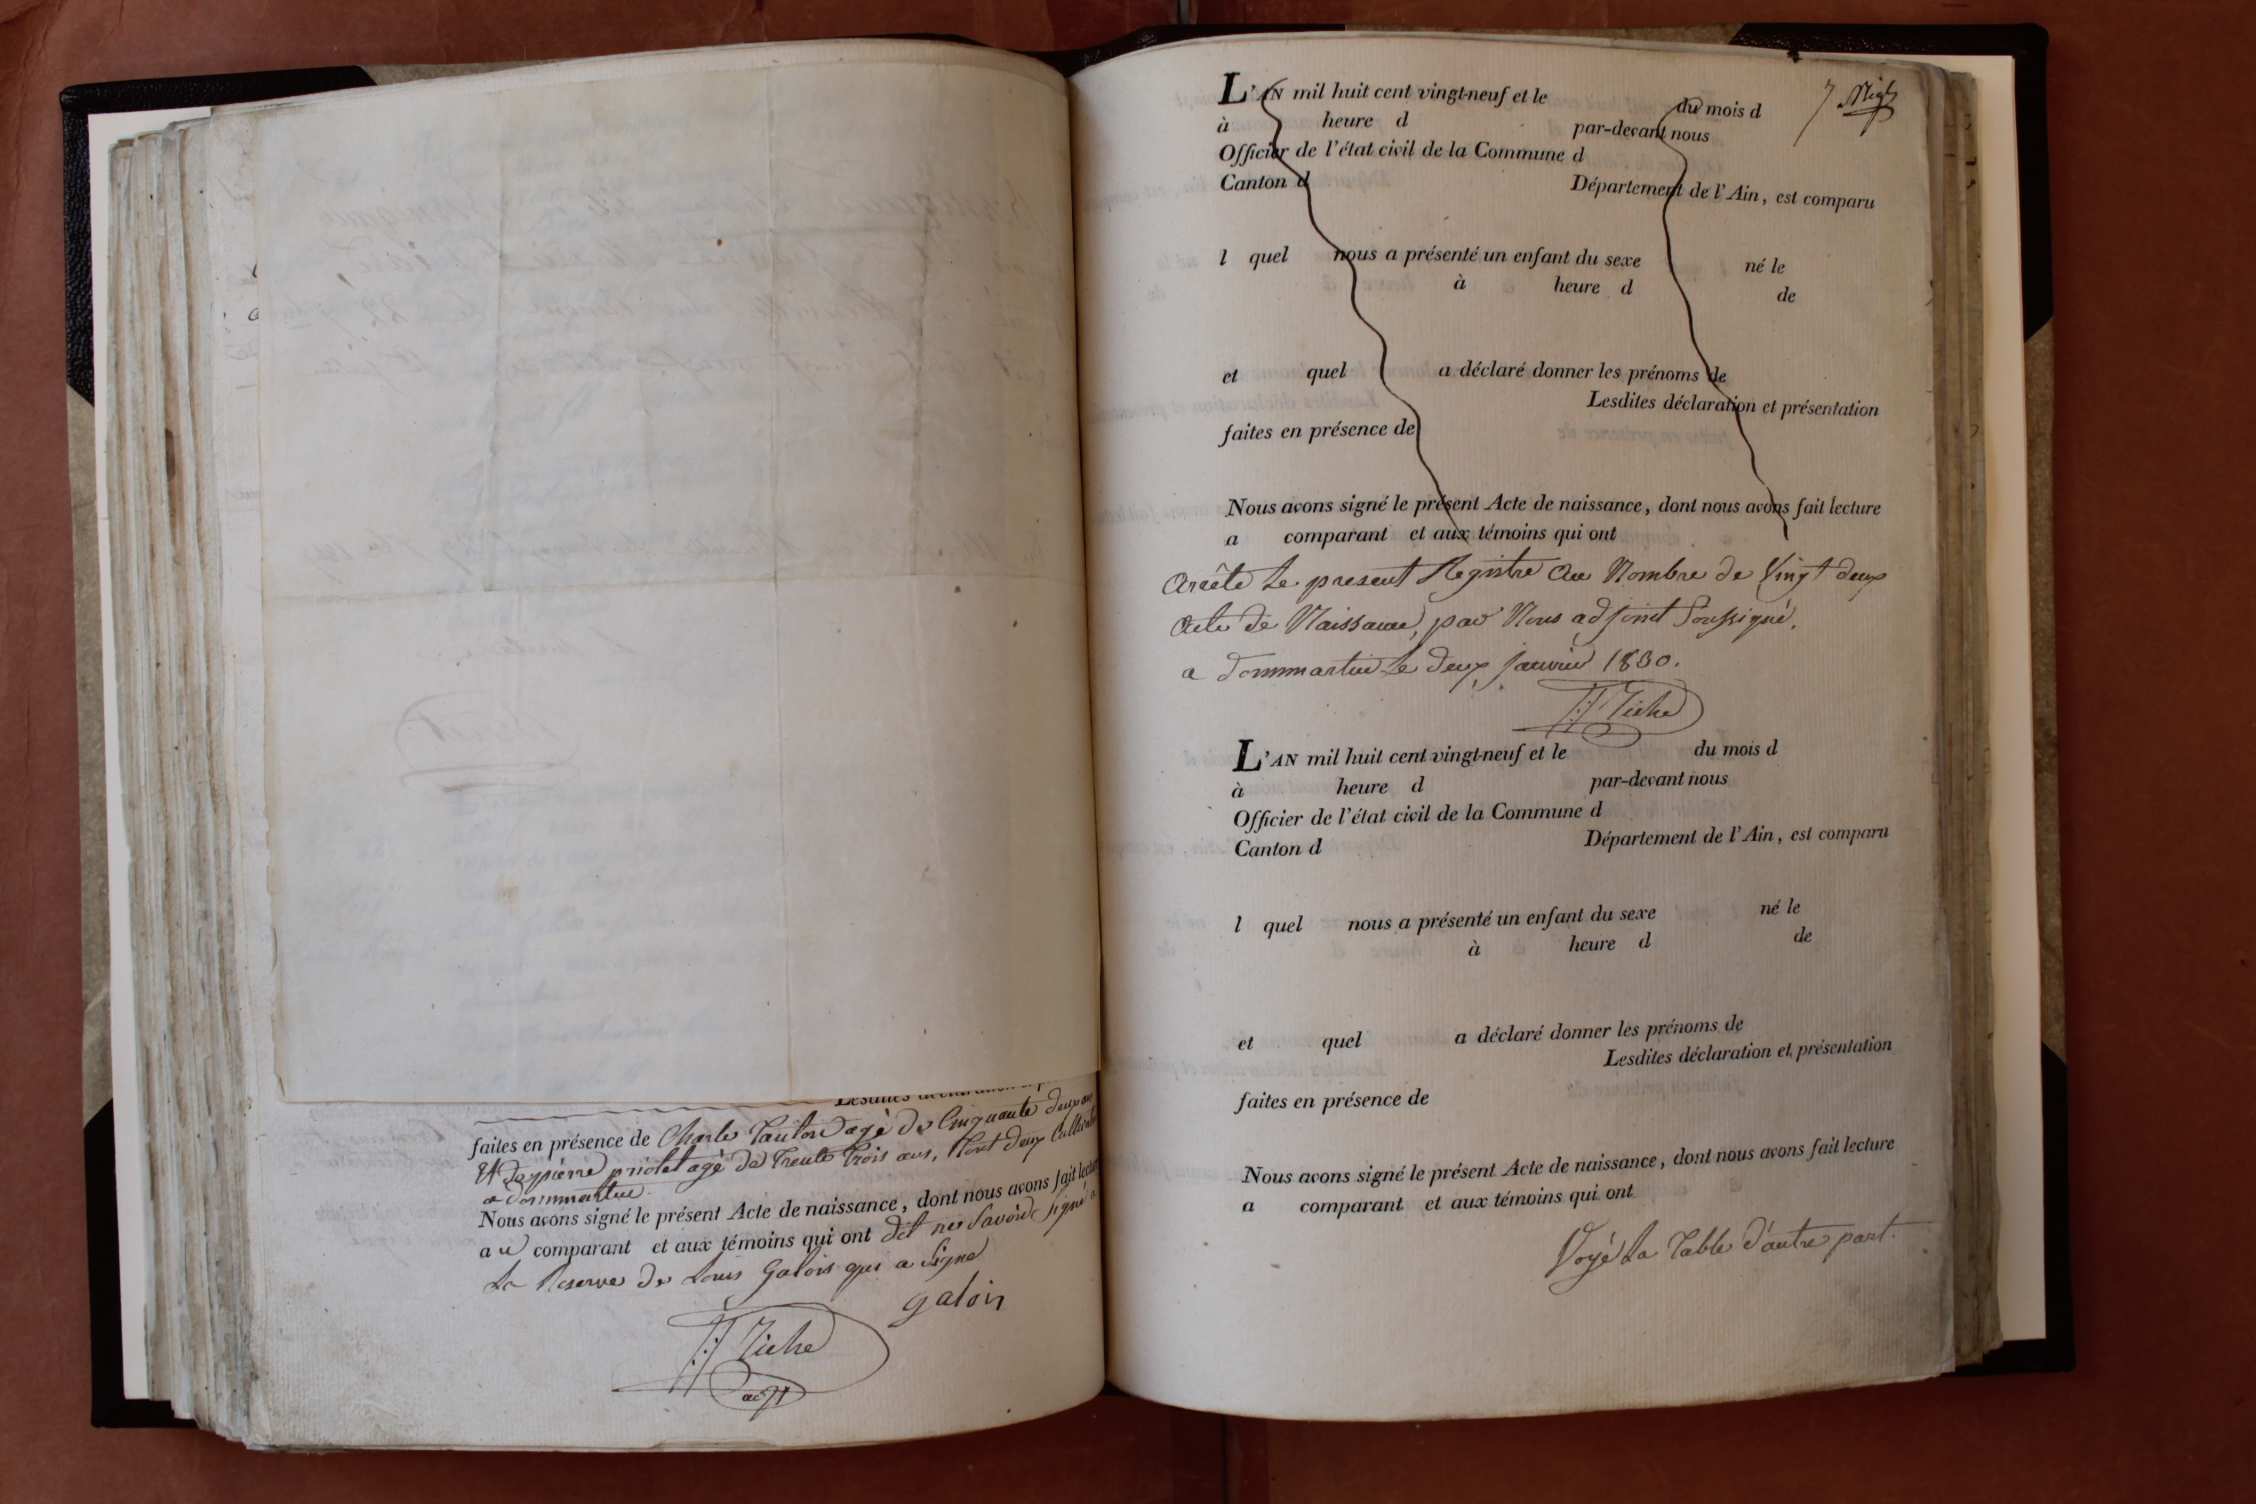 faites en présence de Charle Pauton agé de Cinquante deux ans
Et de pierre priolet agé de Trente Trois ans, tout deux Cultivate
a dommartin.
Nous avons signé le présent Acte de naissance, dont nous avons fait lectur
a u comparant et aux témoins qui ont dit ne Savoir signé a
La Reserve de Louis Galois qui a Signé
galois
Tiche
L'AN mil huit cent vingt-neuf et le du mois d
7
à heure d par-devant nous
Officier de l'état civil de la Commune d
Canton d Département de l'Ain, est comparu
l quel nous a présenté un enfant du sexe né le
à heure d de
et quel a déclaré donner les prénoms de
Lesdites déclaration et présentation
faites en présence de
Nous avons signé le présent Acte de naissance, dont nous avons fait lecture
a comparant et aux témoins qui ont
Arrête Le present Registre Au Nombre de Vingt deux
Acte de Naissance, par Nous adjoint Soussigné,
a Dommartin Le deux Janvier 1830.
Tiche
L'AN mil huit cent vingt-neuf et le du mois d
à heure d par-devant nous
Officier de l'état civil de la Commune d
Canton d Département de l'Ain, est comparu
l quel nous a présenté un enfant du sexe né le
à heure d de
et quel a déclaré donner les prénoms de
Lesdites déclaration et présentation
faites en présence de
Nous avons signé le présent Acte de naissance, dont nous avons fait lecture
a comparant et aux témoins qui ont
Voyé La Table d'autre part.